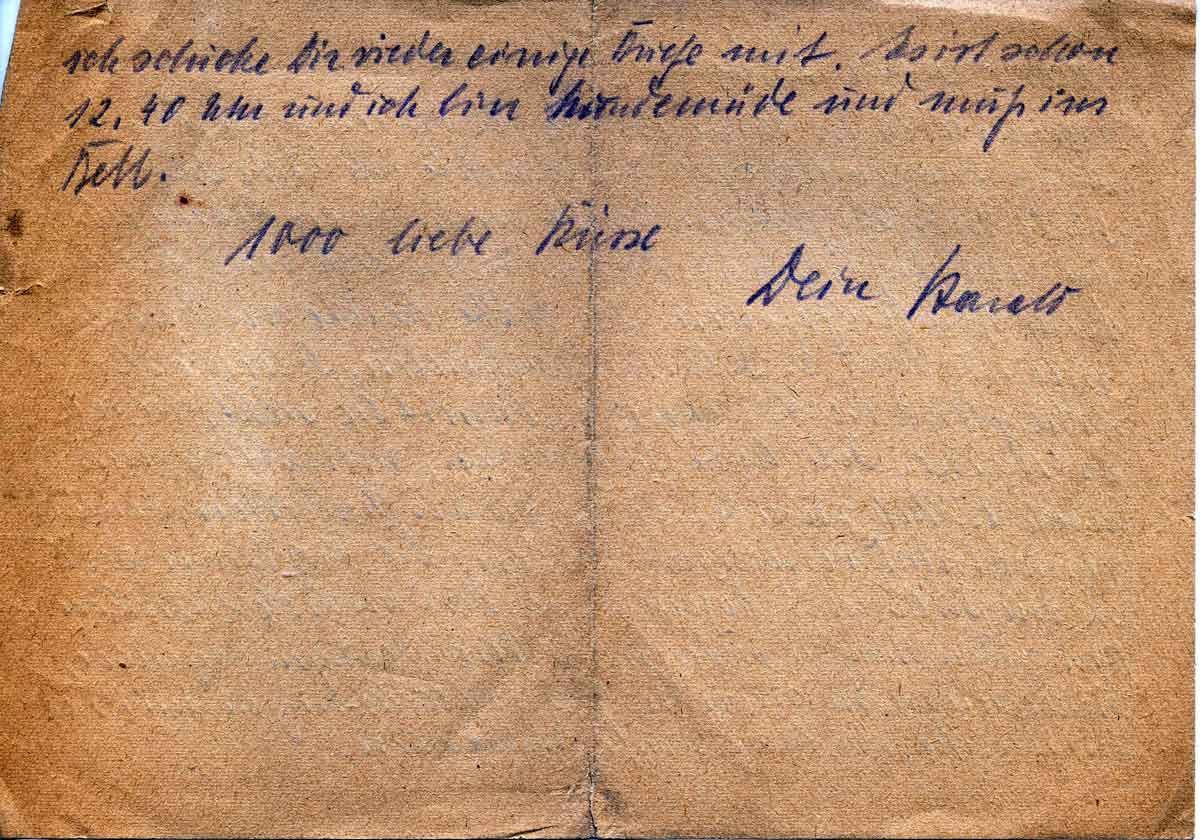 ich schicke Dir wieder einige Briefe mit. Es ist schon
12,40 Uhr und ich bin hundemüde und muß ins
Bett.
1000 liebe Küsse
Dein Harald